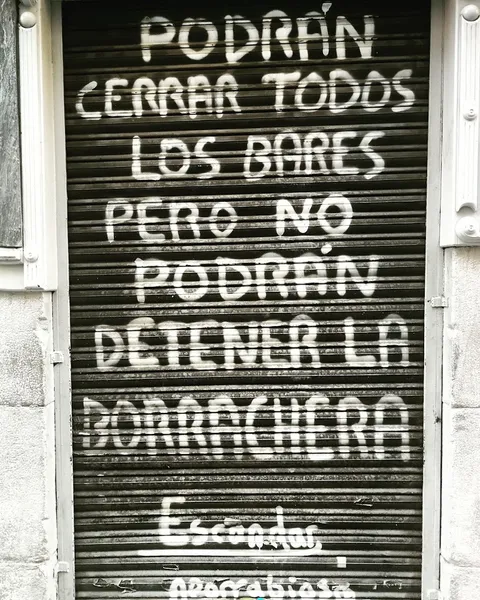 PODRÁN
CERRAR TODOS
LOS BARES
PERO NO
PODRÁN
DETENER LA
BORRACHERA